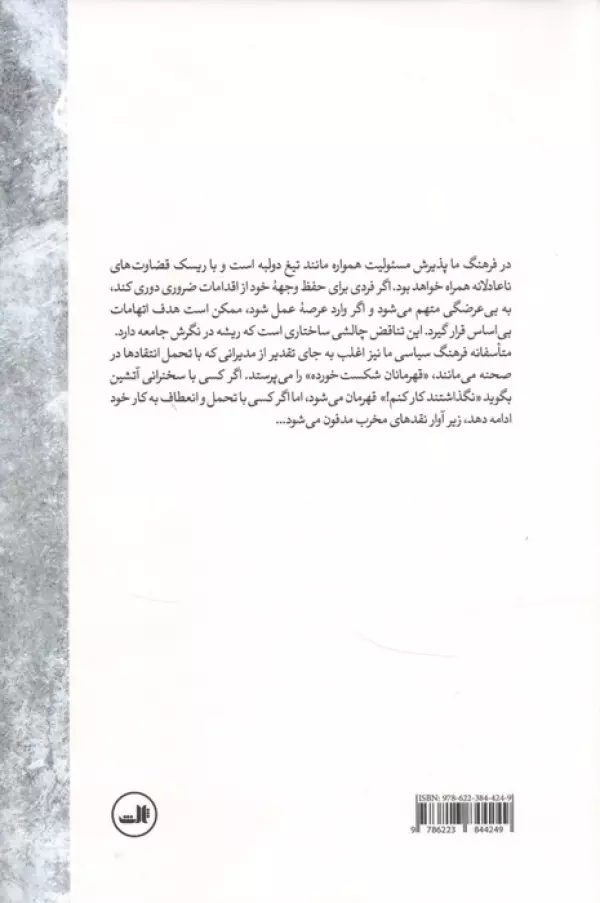 در فرهنگ ما پذیرش مسئولیت همواره مانند تیغ دولبه است و با ریسک قضاوت‌های
ناعادلانه همراه خواهد بود. اگر فردی برای حفظ وجههٔ خود از اقدامات ضروری دوری کند،
به بی‌عرضگی متهم می‌شود و اگر وارد عرصهٔ عمل شود، ممکن است هدف اتهامات
بی‌اساس قرار گیرد. این تناقض چالشی ساختاری است که ریشه در نگرش جامعه دارد.
متأسفانه فرهنگ سیاسی ما نیز اغلب به جای تقدیر از مدیرانی که با تحمل انتقادها در
صحنه می‌مانند، «قهرمانان شکست‌خورده» را می‌پرستد. اگر کسی با سخنرانی آتشین
بگوید «نگذاشتند کار کنم!» قهرمان می‌شود، اما اگر کسی با تحمل و انعطاف به کار خود
ادامه دهد، زیر آوار نقدهای مخرب مدفون می‌شود...
ISBN: 978-622-384-424-9
9 786223 844249
ثالث